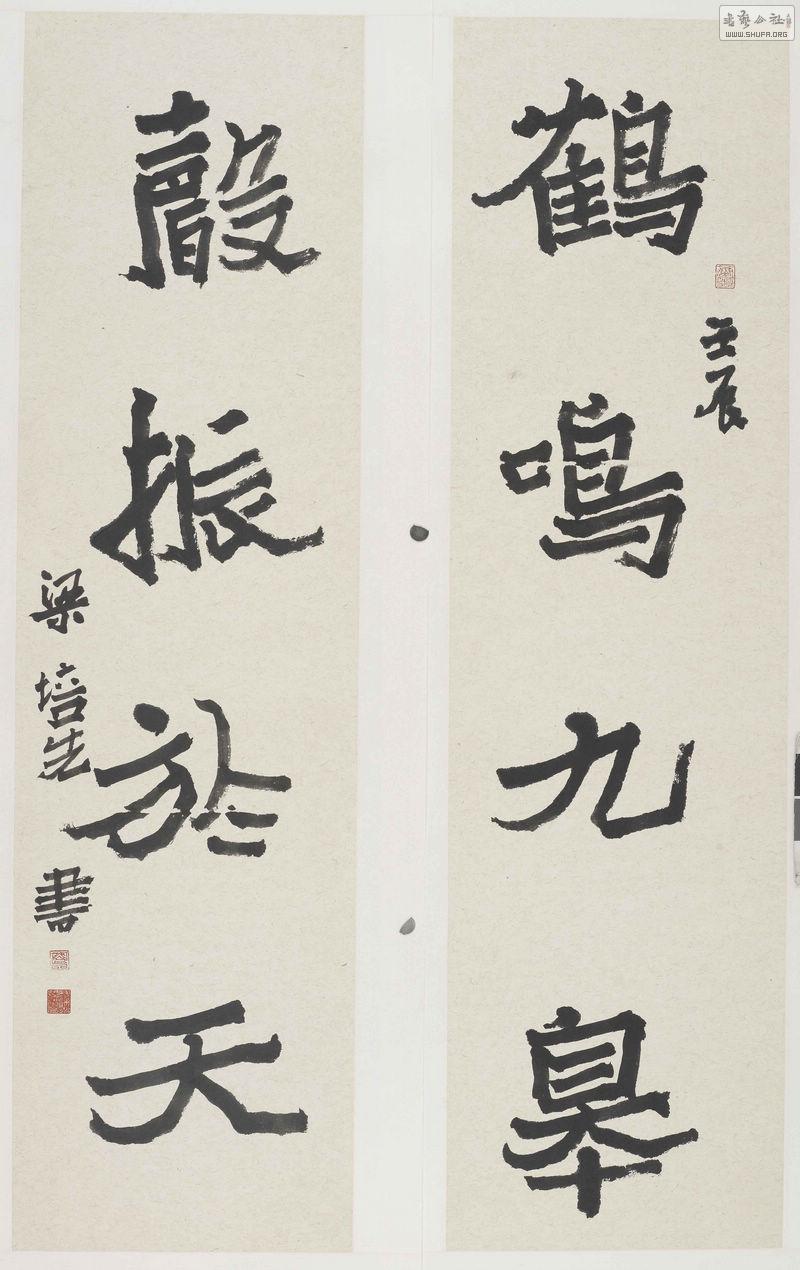 鶴鳴九臯
壬辰
聲振於天
梁培先書
书艺公社
WWW.SHUFA.ORG